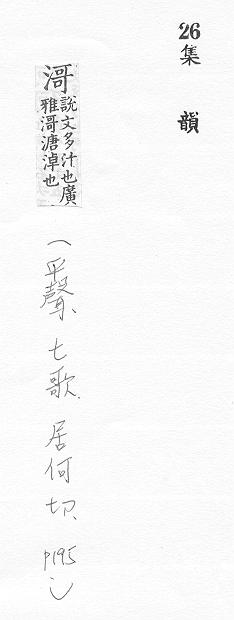 26
集韻
滒
說文多汁也廣
雅滒溏淖也
(平聲、七歌、居何切、P195)